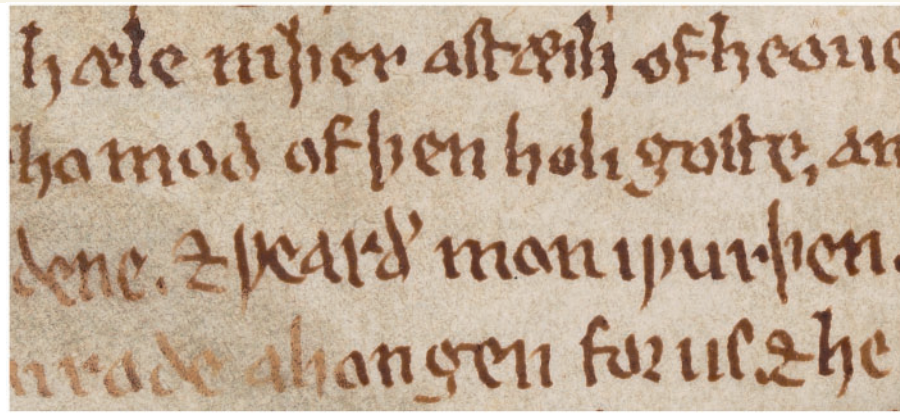 hæle niþer astæih of heoue
homod of þen holi goste, an
dene. ⁊ ƿearð mon iƿurþen.
nrode ahongen for us. ⁊ he